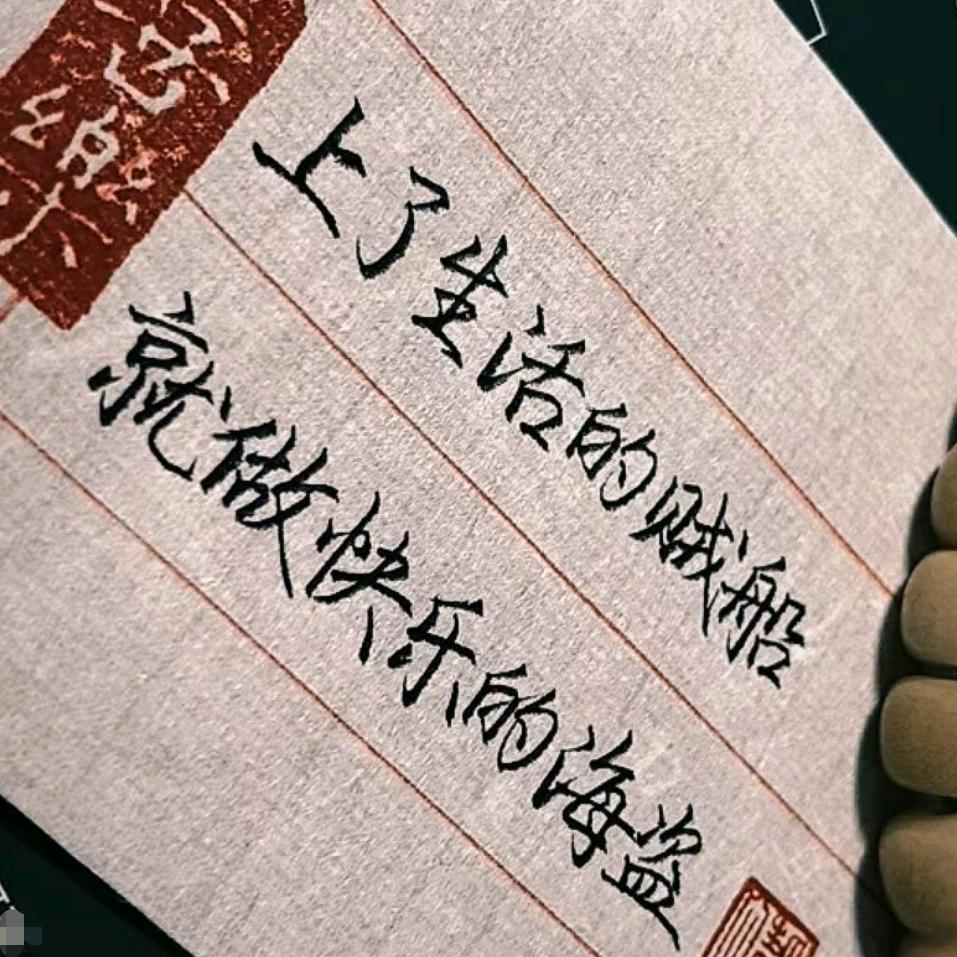 上了生活的贼船
就做快乐的海盗